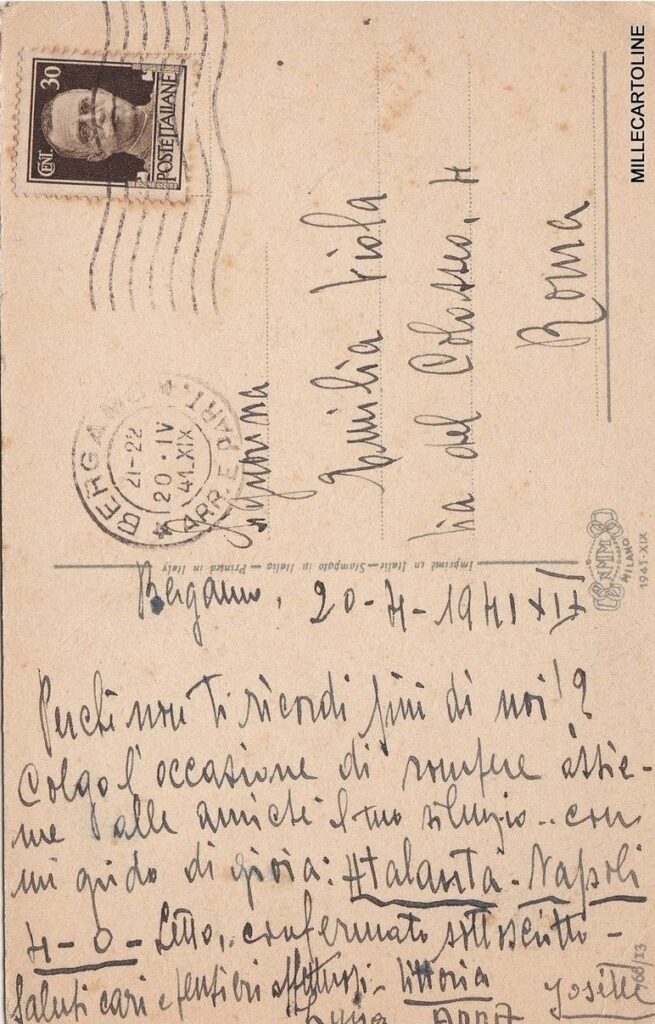 MILLECARTOLINE
CENT. 30
POSTE ITALIANE
BERGAMO
21-22
20·IV
41·XIX
ARR. E PART.
Signorina
Emilia Viola
Via del Colosseo, 4
Roma
Imprimé en Italie — Stampato in Italia — Printed in Italy
MILANO
1941-XIX
Bergamo, 20-4-1941 XIX
Perché non ti ricordi più di noi!?
Colgo l'occasione di rompere assie-
me alle amiche il tuo silenzio.. con
un grido di gioia: Atalanta - Napoli
4-0 - Letto, confermato sottoscritto -
Saluti cari e pensieri affettuosi - Vittoria
Josette